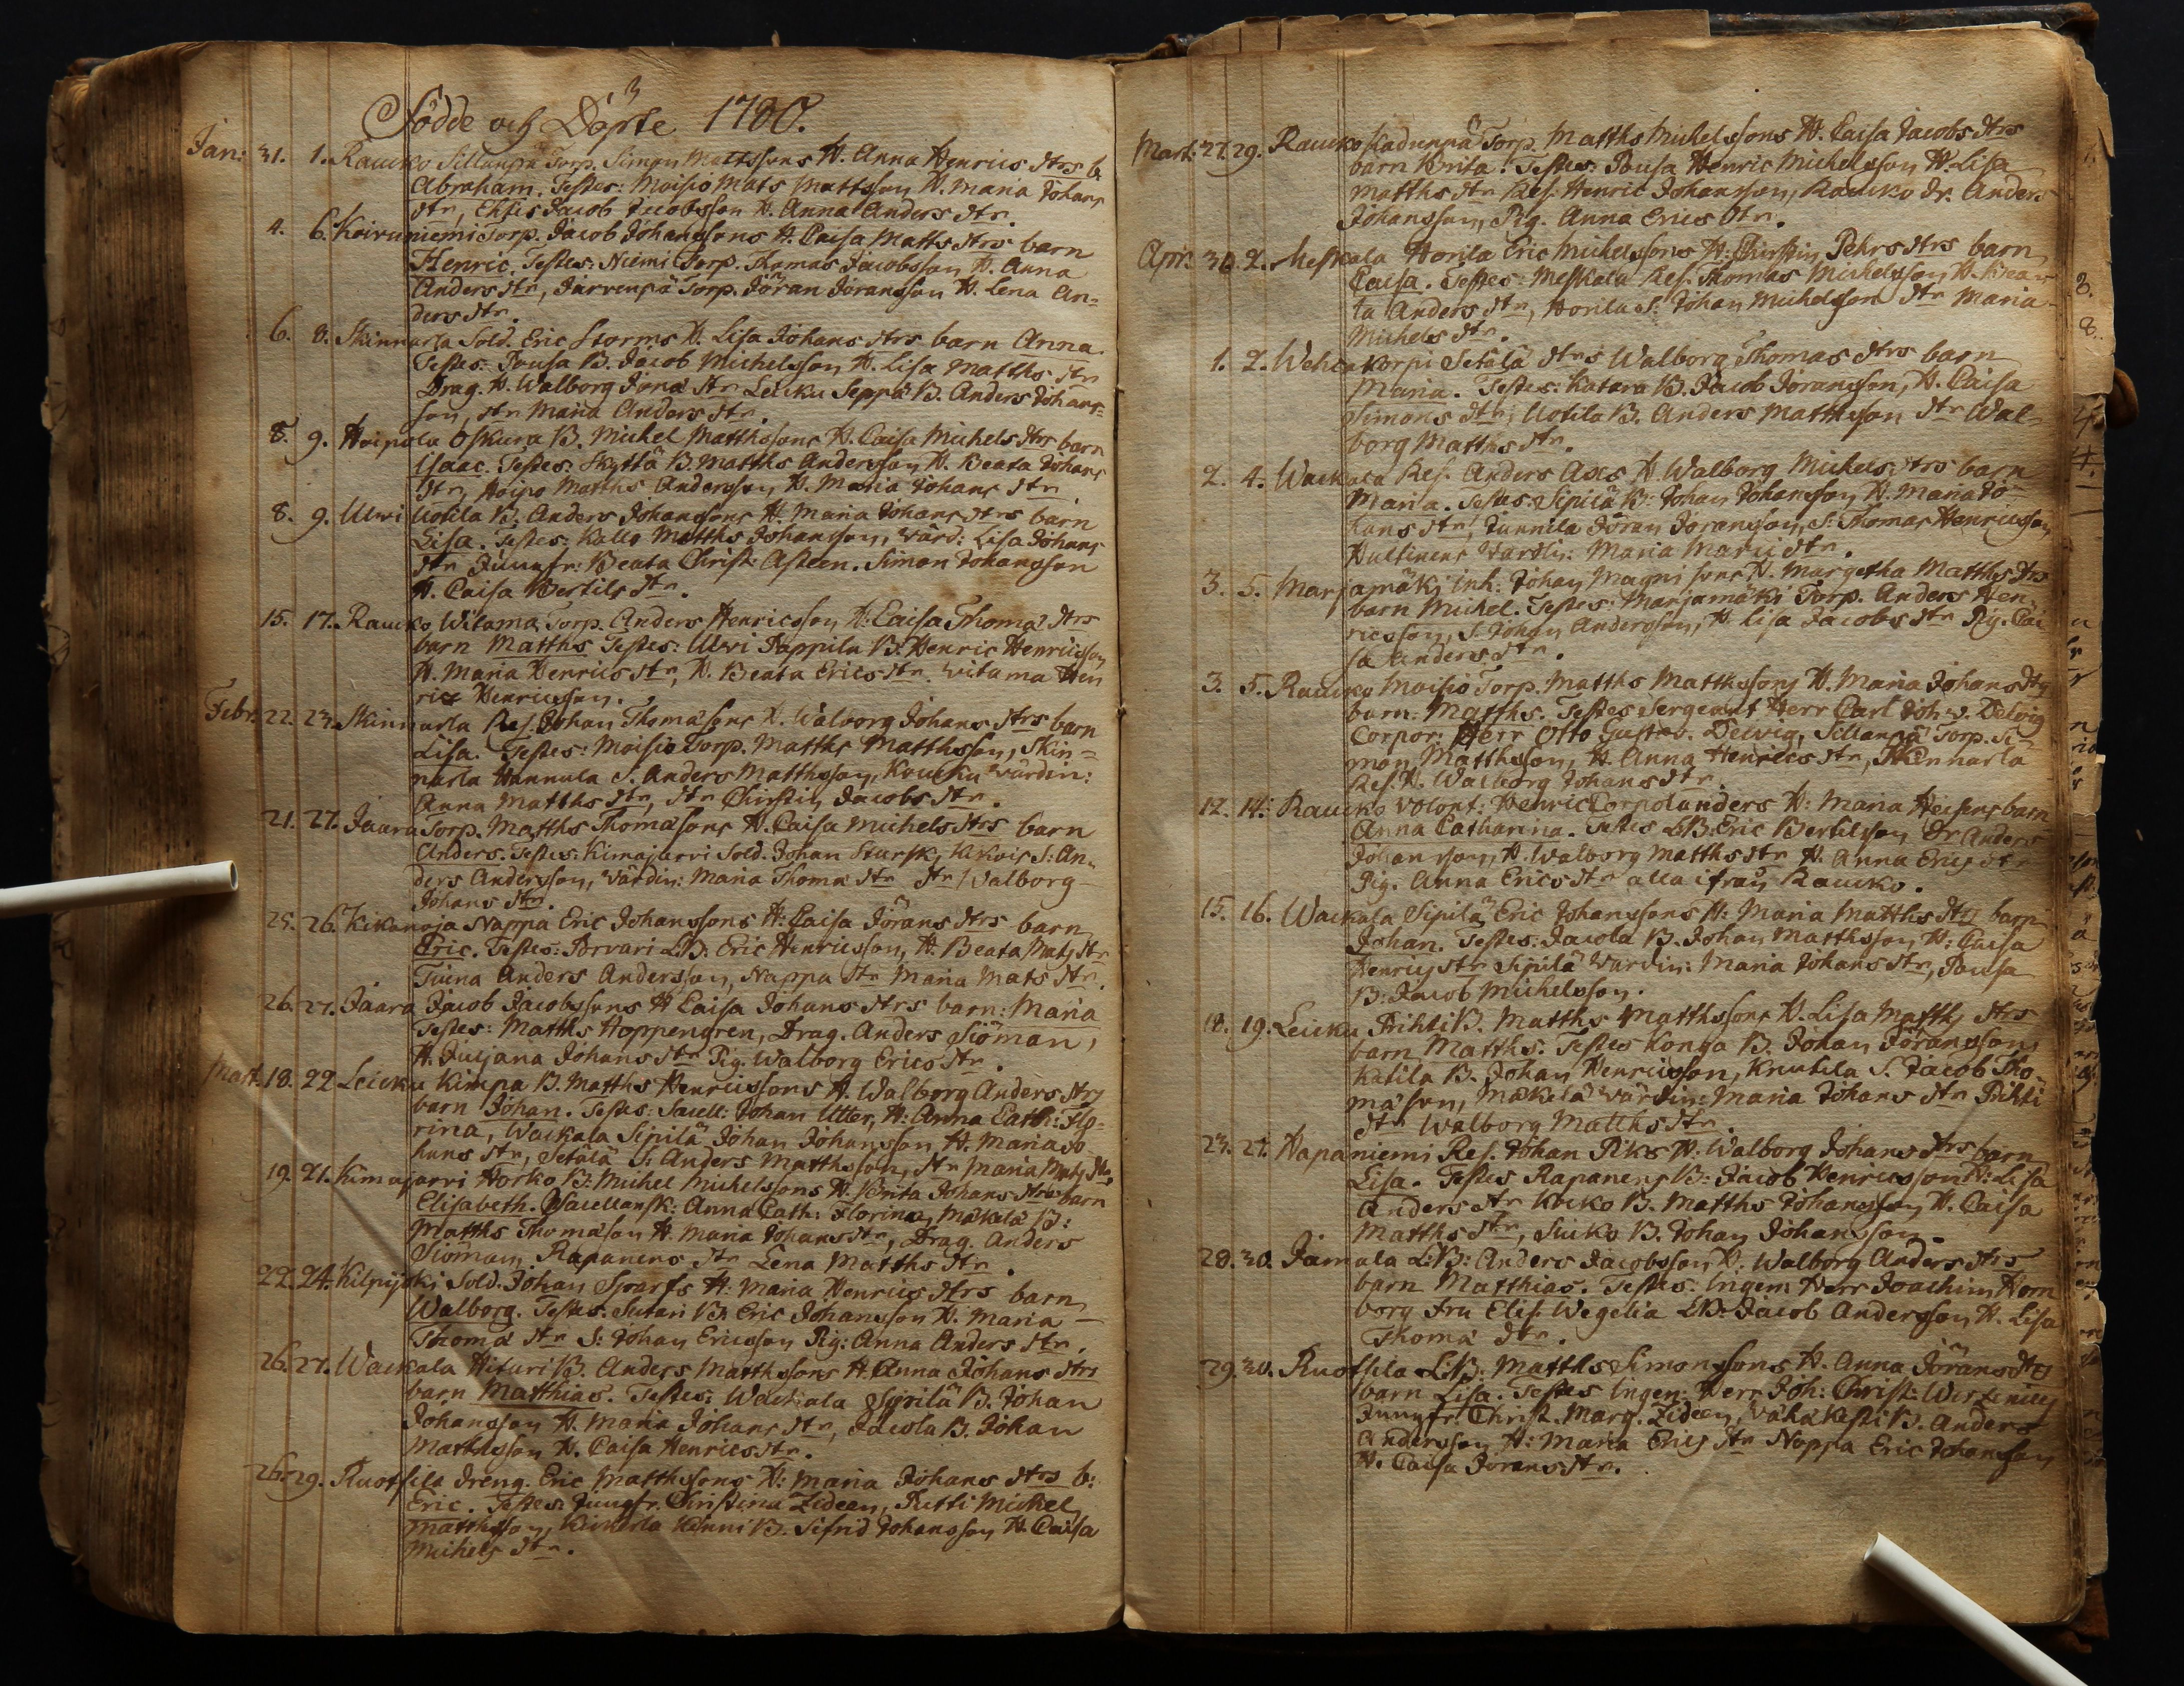 Födde och Döpte 1780.
Jan: 31. 1. Raucko Sillanpä Torp. Simon Mattssons H. Anna Henrics dtrs b.
Abraham. Testes: Moisio Mats Mattsson H. Maria Johans
dtr, Jacob Jacobsson H. Anna Anders dtr.
4. 6. Koivuniemi Torp. Jacob Johanssons H. Caisa Matts dtrs barn
Henric. Testes: Niemi Torp. Thomas Jacobsson H. Anna
Anders dtr, Järvenpä Torp. Jöran Joransson H. Lena An=
ders dtr.
6. 8. Skinnarla Sold. Eric Storms H. Lisa Johans dtrs barn Anna.
Testes: Pousa B. Jacob Michelsson H. Lisa Matths dtr
Drag. H. Walborg Jöra dtr Leicku Seppä B. Anders Johans=
son, dtr Maria Anders dtr.
8. 9. Hoipola Oskura B. Michel Matthssons H. Caisa Michels dtrs barn
Isaac. Testes: Skyttä B. Matths Andersson H. Beata Johans
dtr, Hoipo Matths Andersson, H. Maria Johans dtr
8. 9. Ulvi Uotila B. Anders Johanssons H. Maria Johans dtrs barn
Lisa. Testes: Kallo Matths Johansson, Värd: Lisa Johans
dtr Jungfr: Beata Christ: Asteen. Simon Johansson
H. Caisa Bertils dtr.
15. 17. Raucko Witama Torp. Anders Henricsson H. Caisa Thomæ dtrs
barn Matths Testes: Ulvi Pappila B. Henric Henricsson
H. Maria Henrics dtr, H. Beata Erics dtr. Witama Hen
ric Henricsson.
Febr: 22. 23. Skinnarla Res. Johan Thomæsons H. Walborg Johans dtrs barn
Lisa. Testes: Moisio Torp. Matths Matthsson, Skin=
narla Hannula S. Anders Matthsson, Koucku värdin:
Anna Matths dtr, dtr Chirstin Jacobs dtr.
21. 27. Jaara Torp. Matths Thomæsons H. Caisa Michels dtrs barn
Anders. Testes: Kimajarvi Sold. Johan Stursk, S: An=
ders Andersson, Värdin: Maria Thomæ dtr dtr Walborg
Johans dtr.
25. 26. Kikanoja Nappa Eric Johanssons H: Caisa Jörans dtrs barn
Eric. Testes: Porvari LB: Eric Henricsson, H. Beata Mats dtr
Tuina Anders Andersson, Nappa dtr Maria Mats dtr.
26. 27. Jaara Jacob Jacobssons H Caisa Johans dtrs barn: Maria
Testes: Matths Hoppengren, Drag. Anders Siöman,
H. Juljana Johans dtr Pig. Walborg Erics dtr.
Mart: 18. 22 Leicku Kimpa B. Matths Henricssons H. Walborg Anders dtrs
barn Johan. Testes: Johan Utter, H: Anna Cath: Flo=
rina, Wackala Sipilä Johan Johansson H. Maria Jo=
hans dtr, Setälä S: Anders Matthsson, dtr Maria Mats dtr
19. 21. Kimajarvi Horko B: Michel Michelssons H. Brita Johans dtrs barn
Elisabeth. Anna Cath: Florina, Mäkelä B:
Matths Thomason H. Maria Johans dtr, Drag. Anders
Siöman, Rapanens dtr Lena Matths dtr.
22. 24. Kilpijoki Sold. Johan Sparfs H: Maria Henrics dtrs barn
Walborg. Testes: Sutari B. Eric Johansson H. Maria
Thomæ dtr S: Johan Ericsson Pig: Anna Anders dtr.
26. 27. Wackala Hituri B. Anders Matthssons H. Anna Johans dtrs
barn Matthias. Testes: Wackala Sipilä B. Johan
Johansson H. Maria Johans dtr, Jacola B. Johan
Matthsson H. Caisa Henrics dtr.
26. 29. Ruotsila Dreng. Eric Matthssons H: Maria Johans dtrs b:
Eric. Testes: Jungfr. Christina Zideen, Putti Michel
Matthsson, Kuckerla Kinni B. Sifrid Johansson H. Caisa
Michels dtr.
Mart: 27. 29. Raucko Kadunpä Torp. Matths Michelssons H. Caisa Jacobs dtrs
barn Brita. Testes: Pousa Henric Michelsson H. Lisa
Matths dtr Res: Henric Johansson, Raucko Dr. Anders
Johansson, Pig. Anna Erics dtr.
Apr: 30. 2. Meskala Horila Eric Michelssons H: Chirstin Pehrs dtrs barn
Caisa. Testes: Meskala Res. Thomas Michelsson, H. Bea=
ta Anders dtr, Horila S: Johan Michelsson dtr Maria
Michels dtr.
1. 2. Wehcakorpi Setälä dtrs Walborg Thomas dtrs barn
Maria. Testes: Katara B. Jacob Joransson, H. Caisa
Simons dtr, Uotila B. Anders Matthsson dtr Wal=
borg Matths dtr.
2. 4. Wackala Res. Anders Axs H. Walborg Michels dtrs barn
Maria. Testes: Sipilä B. Johan Johansson H. Maria Jo=
hans dtr, Junnila Jöran Joransson, S: Thomas Henricsson
Hultinens Värdin: Maria Marci dtr.
3. 5. Marjamäki Inh: Johan Magni sons H. Margetha Matths dtrs
barn Michel. Testes: Marjamäki Torp. Anders Hen=
ricsson, S. Johan Andersson, H. Lisa Jacobs dtr Pig. Cai=
sa Anders dtr.
3. 5. Raucko Moisio Torp. Matths Matthssons H. Maria Johans dtrs
barn: Matths. Testes Sergeant Herr Carl Joh: v. Delvig
Corpor: Herr Otto Gustav. Delvig, Sillanpä Torp. Si=
mon Matthsson, H. Anna Henrics dtr, Skinnarla
Res. H. Walborg Johans dtr.
12. 14. Raucko Volont: Henric Corpolanders H: Maria Heisens barn
Anna Catharina. Testes LB: Eric Bertilsson, Dr Anders
Johansson, H. Walborg Matths dtr H. Anna Erics dtr
Pig. Anna Erics dtr alla ifrån Raucko.
15. 16. Wackala Sipilä Eric Johanssons H: Maria Matths dtrs barn
Johan. Testes: Jacola B. Johan Matthsson, H: Caisa
Henrics dtr Sipilä Värdin: Maria Johans dtr, Pousa
B: Jacob Michelsson.
18. 19. Leicku Prihti B. Matths Matthssons H. Lisa Matths dtrs
barn Matths. Testes Konga B. Johan Jöransson
Katila B. Johan Henricsson, Knutila S. Jacob Tho=
mæson, Mäkelä Värdin: Maria Johans dtr Prihti
dtr Walborg Matths dtr.
23. 27. Hapaniemi Res. Johan Piks H. Walborg Johans dtrs barn
Lisa. Testes Rapanens B: Jacob Henricsson H: Lisa
Anders dtr Kocko B. Matths Johansson H. Caisa
Matths dtr, Suiko B. Johan Johansson.
28. 30. Jamala L:B: Anders Jacobsson H: Walborg Anders dtrs
barn Matthias. Testes: Ingen: Herr Joachim Horn
borg Fru Elis. Wegelia LB: Jacob Andersson H. Lisa
Thomæ dtr.
29. 30. Ruotsila L:B: Matths Simonssons H. Anna Jörans dtrs
barn Lisa. Testes Ingen: Herr Joh: Christ: Wirzenius
Jungfr Christ. Marg. Zideen, Vähä Kesti B. Anders
Andersson H: Maria Erics dtr Nappa Eric Johansson
H. Caisa Jörans dtr.